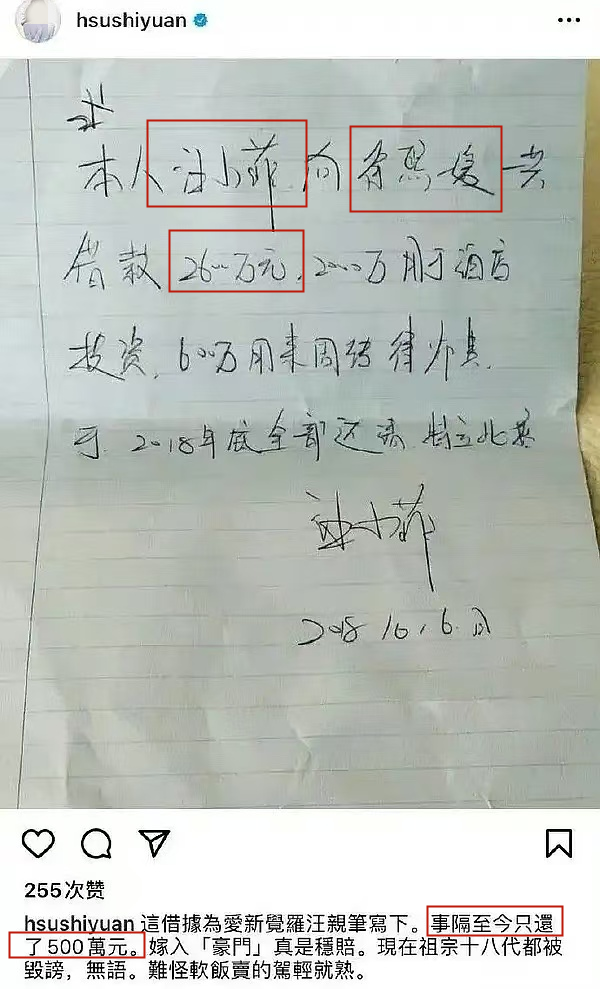 hsushiyuan
本人汪小菲.向徐熙媛共
借款2600万元,2000万用于酒店
投资,600万用来周转律师费.
于2018年底全部还清 特立
汪小菲
2018 10.6.日
255次赞
hsushiyuan 這借據為愛新覺羅汪親筆寫下。事隔至今只還
了500萬元。嫁入「豪門」真是穩賠。現在祖宗十八代都被
毀謗，無語。難怪軟飯賣的駕輕就熟。